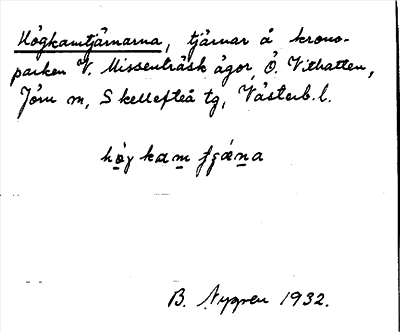 Högkamtjärnarna, tjärnar å krono-
parken V. Missenträsk ägor, Ö. Vithatten,
Jörn sn, Skellefteå tg, Västerb. l.
hög kam
B. Nygren 1932.